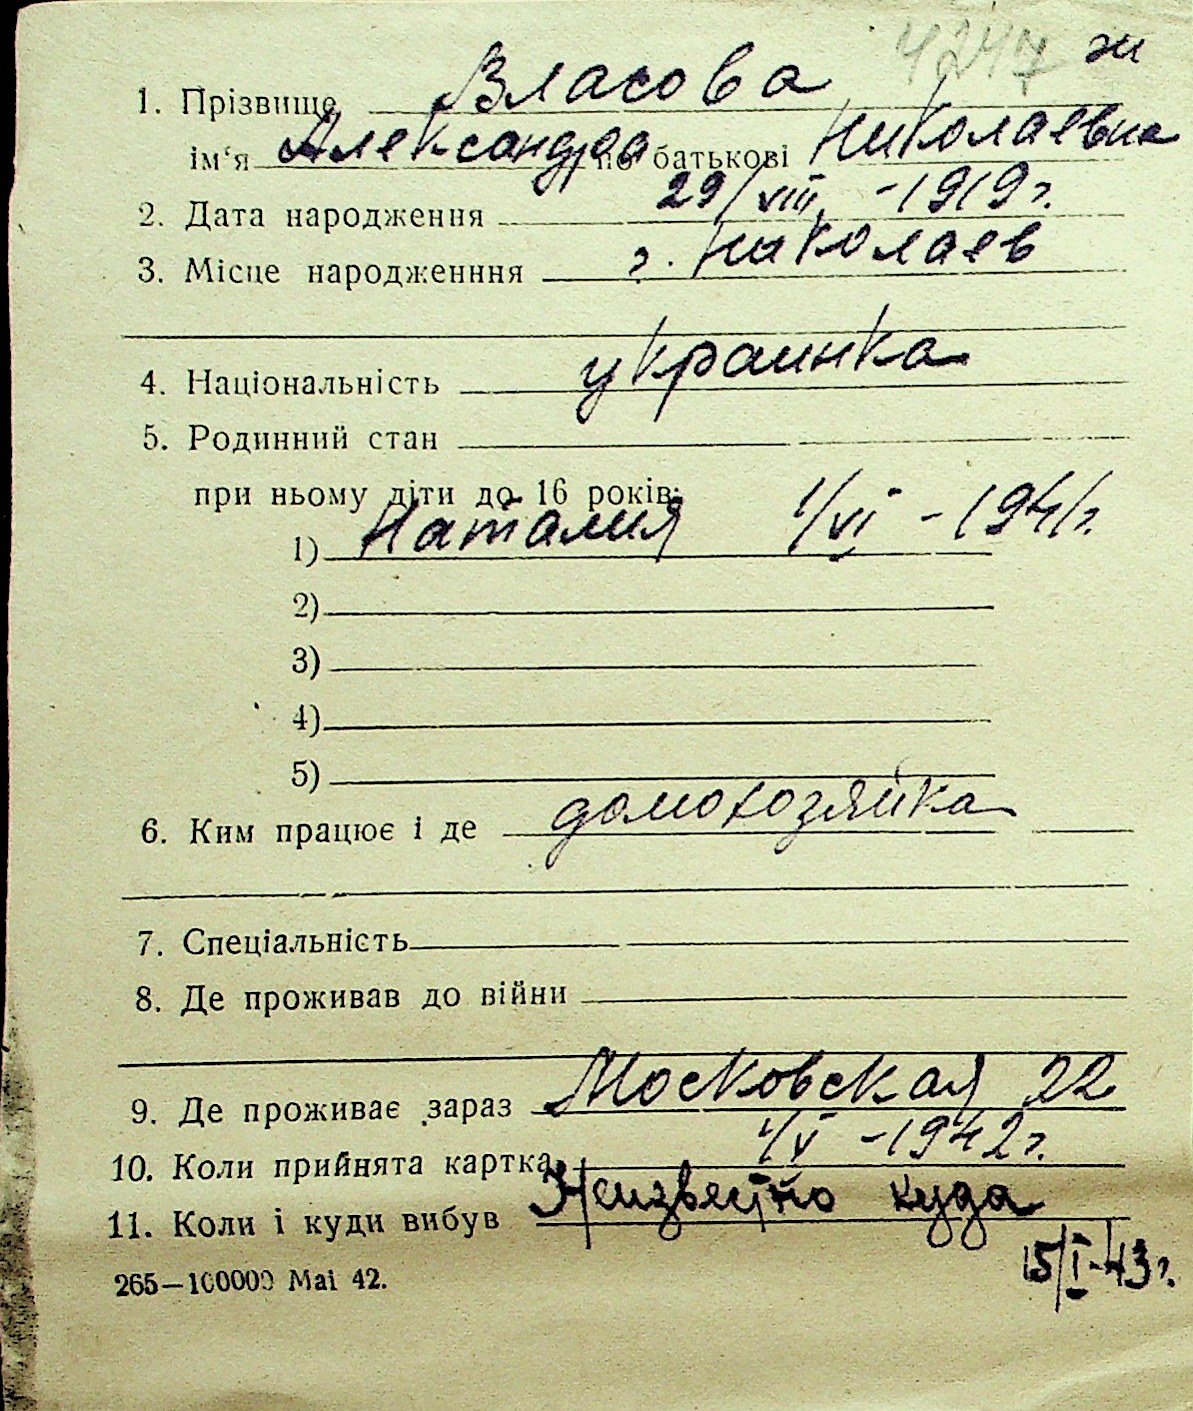 4247 ж
1. Прізвище Власова
ім'я Александра по батькові Николаевна
2. Дата народження 29/VIII -1919 г.
3. Місце народженння г. Николаев
4. Національність украинка
5. Родинний стан
при ньому діти до 16 років:
1) Наталия 1/VI -1941 г.
2)
3)
4)
5)
6. Ким працює і де домохозяйка
7. Спеціальність
8. Де проживав до війни
9. Де проживає зараз Московская 22
10. Коли прийнята картка 1/V -1942 г.
11. Коли і куди вибув Неизвестно куда
15/I-43 г.
265—100000 Mai 42.